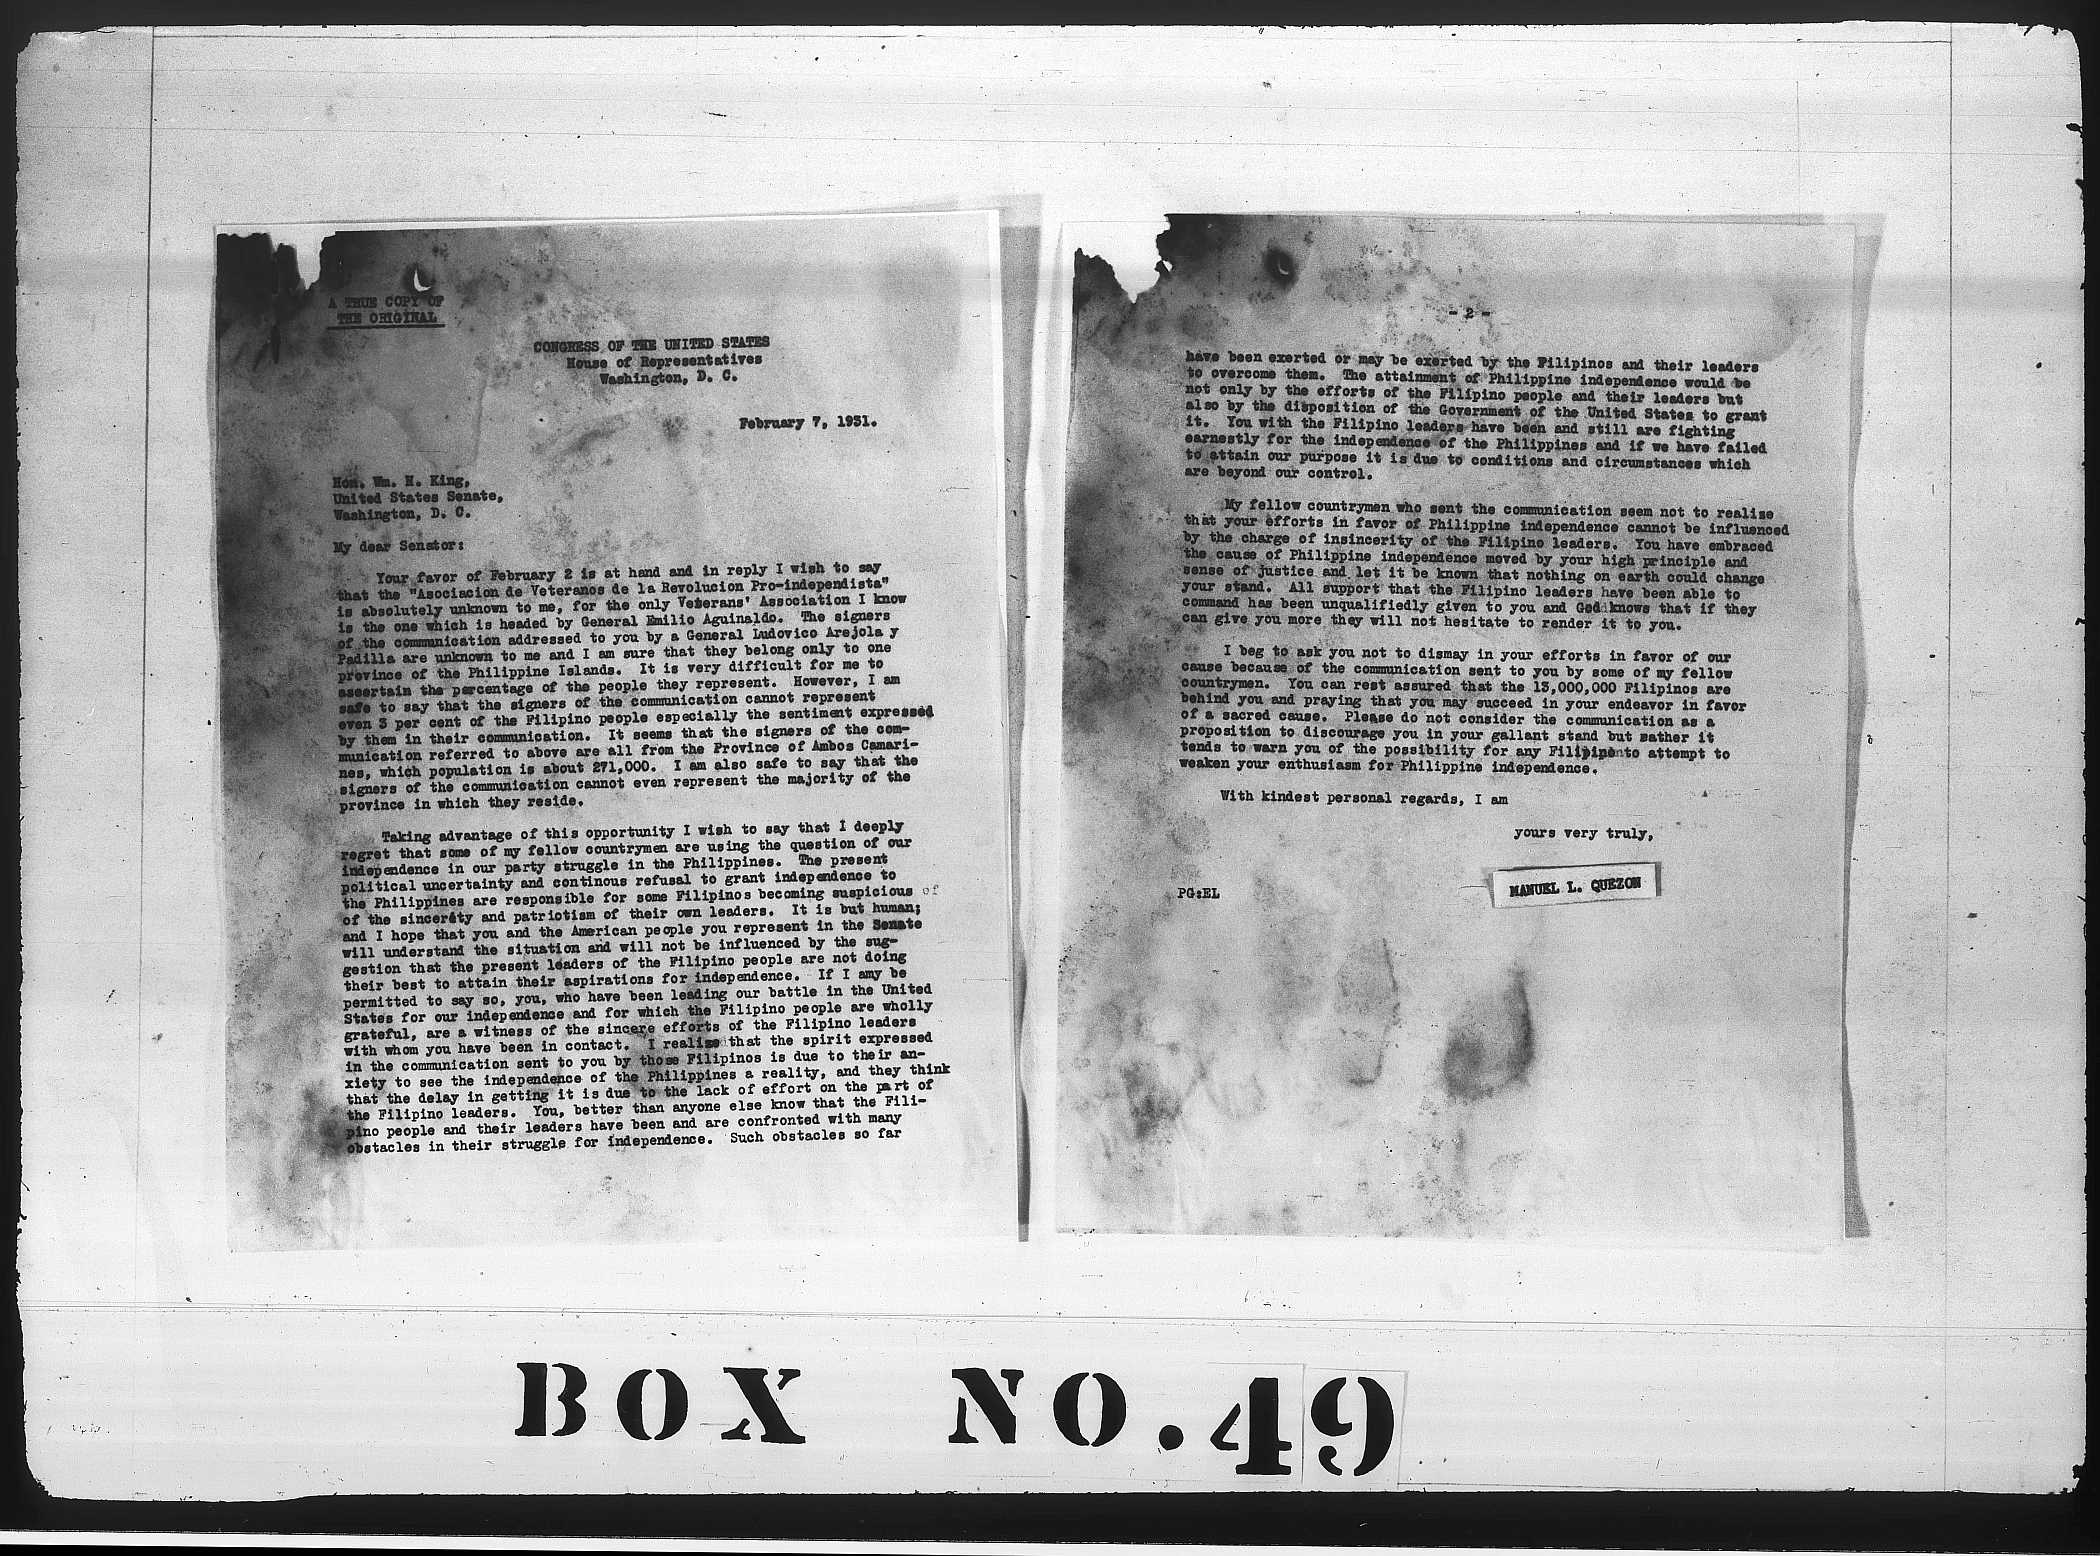 A TRUE COPY OF
THE ORIGINAL
CONGRESS OF THE UNITED STATES
House of Representatives
Washington, D. C.
February 7, 1931.
Hon. Wm. H. King,
United States Senate,
Washington, D. C.
My dear Senator:
Your favor of February 2 is at hand and in reply I wish to say
that the "Asociacion de Veteranos de la Revolucion Pro-independista"
is absolutely unknown to me, for the only Veterans' Association I know
is the one which is headed by General Emilio Aguinaldo. The signers
of the communication addressed to you by a General Ludovico Arejola y
Padilla are unknown to me and I am sure that they belong only to one
province of the Philippine Islands. It is very difficult for me to
ascertain the percentage of the people they represent. However, I am
safe to say that the signers of the communication cannot represent
even 3 per cent of the Filipino people especially the sentiment expressed
by them in their communication. It seems that the signers of the com-
munication referred to above are all from the Province of Ambos Camari-
nes, which population is about 271,000. I am also safe to say that the
signers of the communication cannot even represent the majority of the
province in which they reside.
Taking advantage of this opportunity I wish to say that I deeply
regret that some of my fellow countrymen are using the question of our
independence in our party struggle in the Philippines. The present
political uncertainty and continous refusal to grant independence to
the Philippines are responsible for some Filipinos becoming suspicious of
of the sincerity and patriotism of their own leaders. It is but human;
and I hope that you and the American people you represent in the Senate
will understand the situation and will not be influenced by the sug-
gestion that the present leaders of the Filipino people are not doing
their best to attain their aspirations for independence. If I amy be
permitted to say so, you, who have been leading our battle in the United
States for our independence and for which the Filipino people are wholly
grateful, are a witness of the sincere efforts of the Filipino leaders
with whom you have been in contact. I realize that the spirit expressed
in the communication sent to you by those Filipinos is due to their an-
xiety to see the independence of the Philippines a reality, and they think
that the delay in getting it is due to the lack of effort on the part of
the Filipino leaders. You, better than anyone else know that the Fili-
pino people and their leaders have been and are confronted with many
obstacles in their struggle for independence. Such obstacles so far
- 2 -
have been exerted or may be exerted by the Filipinos and their leaders
to overcome them. The attainment of Philippine independence would be
not only by the efforts of the Filipino people and their leaders but
also by the disposition of the Government of the United States to grant
it. You with the Filipino leaders have been and still are fighting
earnestly for the independence of the Philippines and if we have failed
to attain our purpose it is due to conditions and circumstances which
are beyond our control.
My fellow countrymen who sent the communication seem not to realize
that your efforts in favor of Philippine independence cannot be influenced
by the charge of insincerity of the Filipino leaders. You have embraced
the cause of Philippine independence moved by your high principle and
sense of justice and let it be known that nothing on earth could change
your stand. All support that the Filipino leaders have been able to
command has been unqualifiedly given to you and God knows that if they
can give you more they will not hesitate to render it to you.
I beg to ask you not to dismay in your efforts in favor of our
cause because of the communication sent to you by some of my fellow
countrymen. You can rest assured that the 13,000,000 Filipinos are
behind you and praying that you may succeed in your endeavor in favor
of a sacred cause. Please do not consider the communication as a
proposition to discourage you in your gallant stand but rather it
tends to warn you of the possibility for any Filipino to attempt to
weaken your enthusiasm for Philippine independence.
With kindest personal regards, I am
yours very truly,
MANUEL L. QUEZON
PG:EL
BOX NO. 49